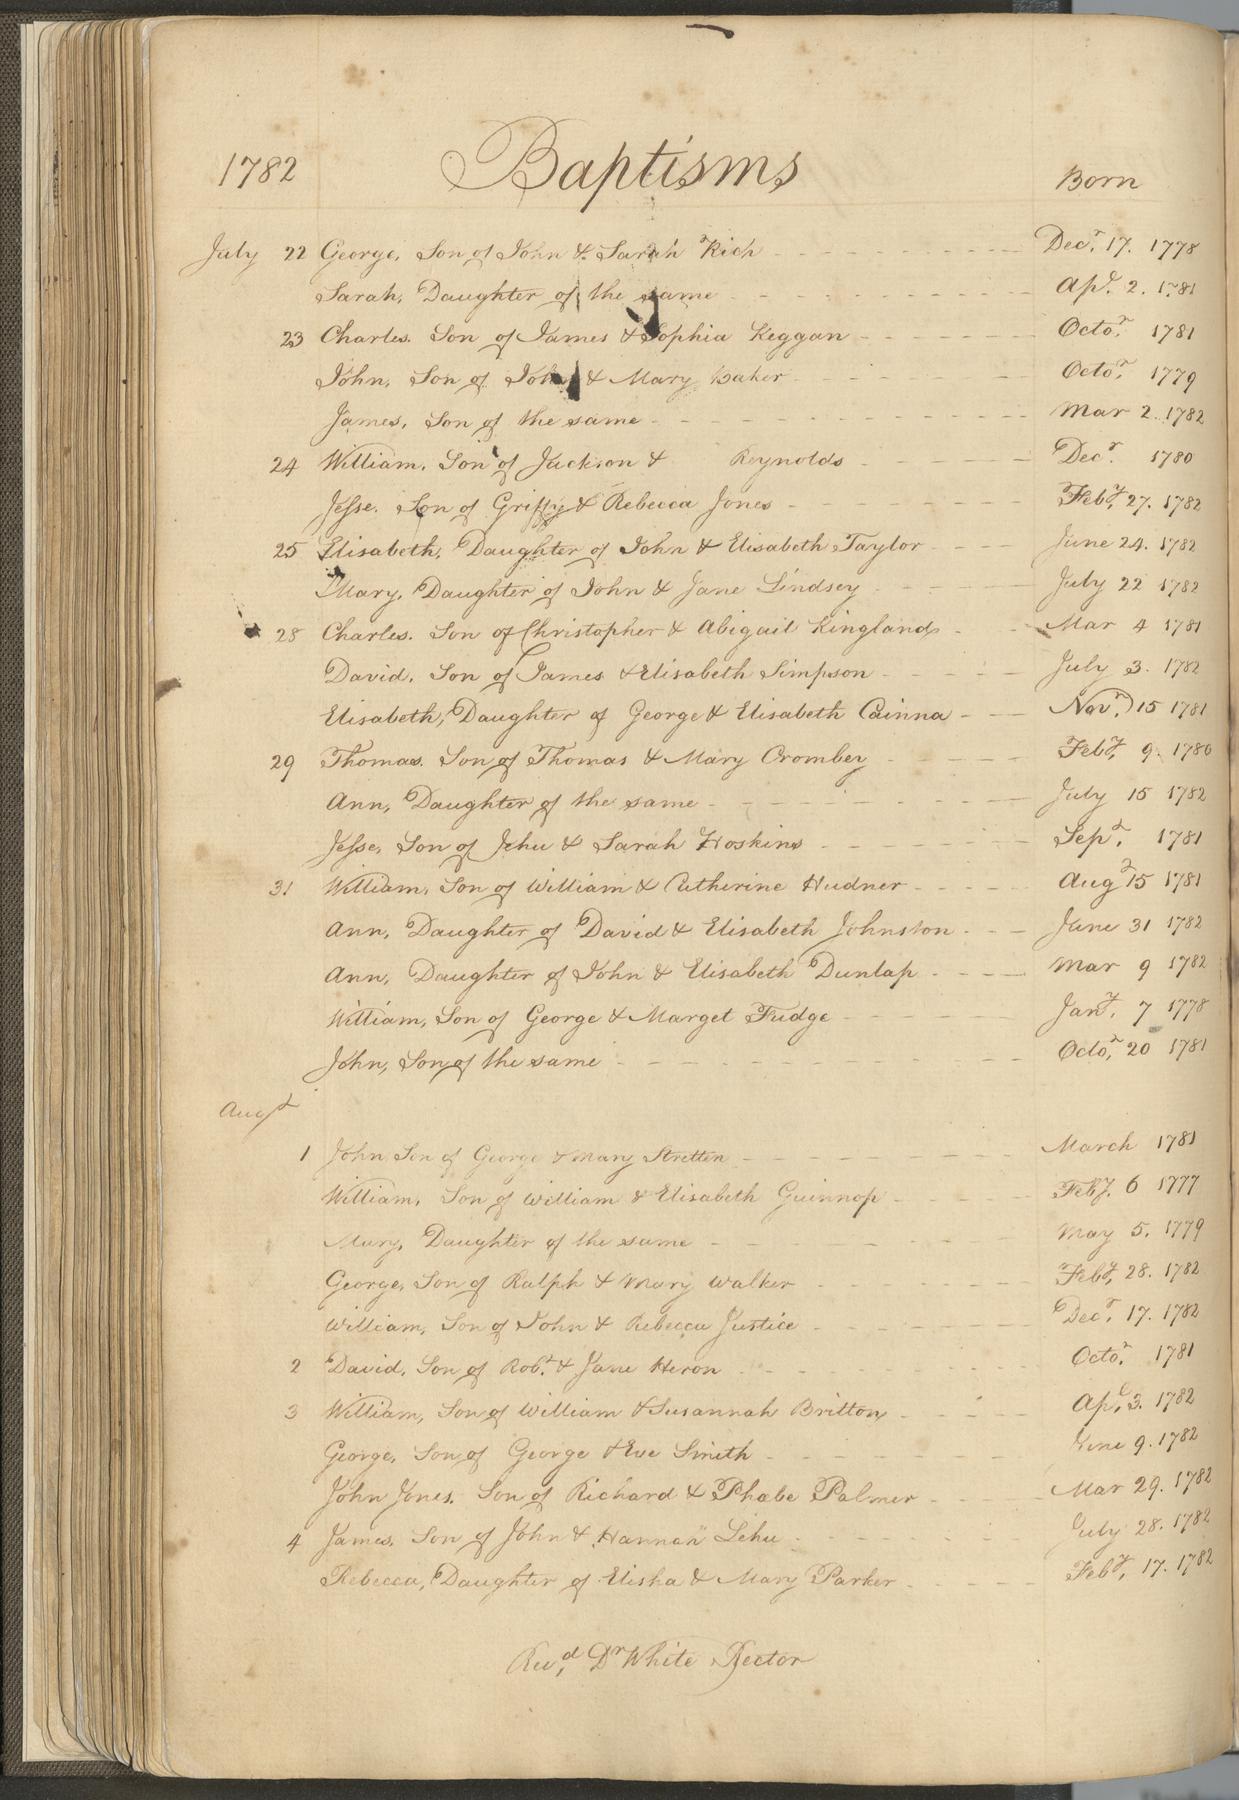 1782 Baptisms Born
July 22 George, Son of John & Sarah Rich Decr. 17. 1778
Sarah, Daughter of the same Apl. 2. 1781
23 Charles. Son of James & Sophia Keggan Octor. 1781
John, Son of John & Mary Baker Octor. 1779
James, Son of the same Mar 2. 1782
24 William. Son of Jackson & Reynolds Decr. 1780
Jesse. Son of Griffy & Rebecca Jones Feby. 27. 1782
25 Elisabeth, Daughter of John & Elisabeth Taylor June 24. 1782
Mary, Daughter of John & Jane Lindsey July 22 1782
28 Charles. Son of Christopher & Abigail Kinglands Mar 4 1781
David, Son of James & Elisabeth Simpson July 3. 1782
Elisabeth, Daughter of George & Elisabeth Cainna Novr. 15 1781
29 Thomas. Son of Thomas & Mary Crombey Feby. 9. 1780
Ann, Daughter of the same July 15 1782
Jesse, Son of Jehu & Sarah Hoskins Sept. 1781
31 William, Son of William & Catherine Hudner Augt 15 1781
Ann, Daughter of David & Elisabeth Johnston June 31 1782
Ann, Daughter of John & Elisabeth Dunlap Mar 9 1782
William, Son of George & Marget Fudge Jany. 7 1778
John, Son of the same Octor. 20 1781
Augt
1 John Son of George & Mary Stretten March 1781
William, Son of William & Elisabeth Guinnop Feby. 6 1777
Mary, Daughter of the same May 5. 1779
George, Son of Ralph & Mary Walker Feby. 28. 1782
William, Son of John & Rebecca Justice Decr. 17. 1782
2 David, Son of Robt. & Jane Heron Octor. 1781
3 William, Son of William & Susannah Britton Apl. 3. 1782
George, Son of George & Eve Smith June 9. 1782
John Jones. Son of Richard & Phabe Palmer Mar 29. 1782
4 James, Son of John & Hannah Lehu July 28. 1782
Rebecca, Daughter of Elisha & Mary Parker Feby. 17. 1782
Revd. Dr White Rector